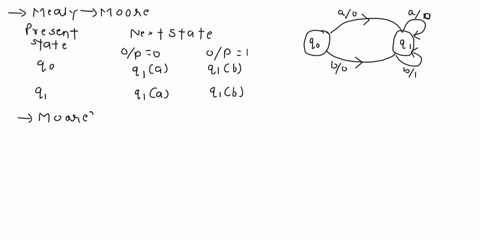 → Mealy → Moore
Present State
Next State
o/p=0 o/p=1
q0 q1(a) q1(b)
q1 q1(a) q1(b)
→ Moare
a/0
a/
q0
q1
b/0
b/1